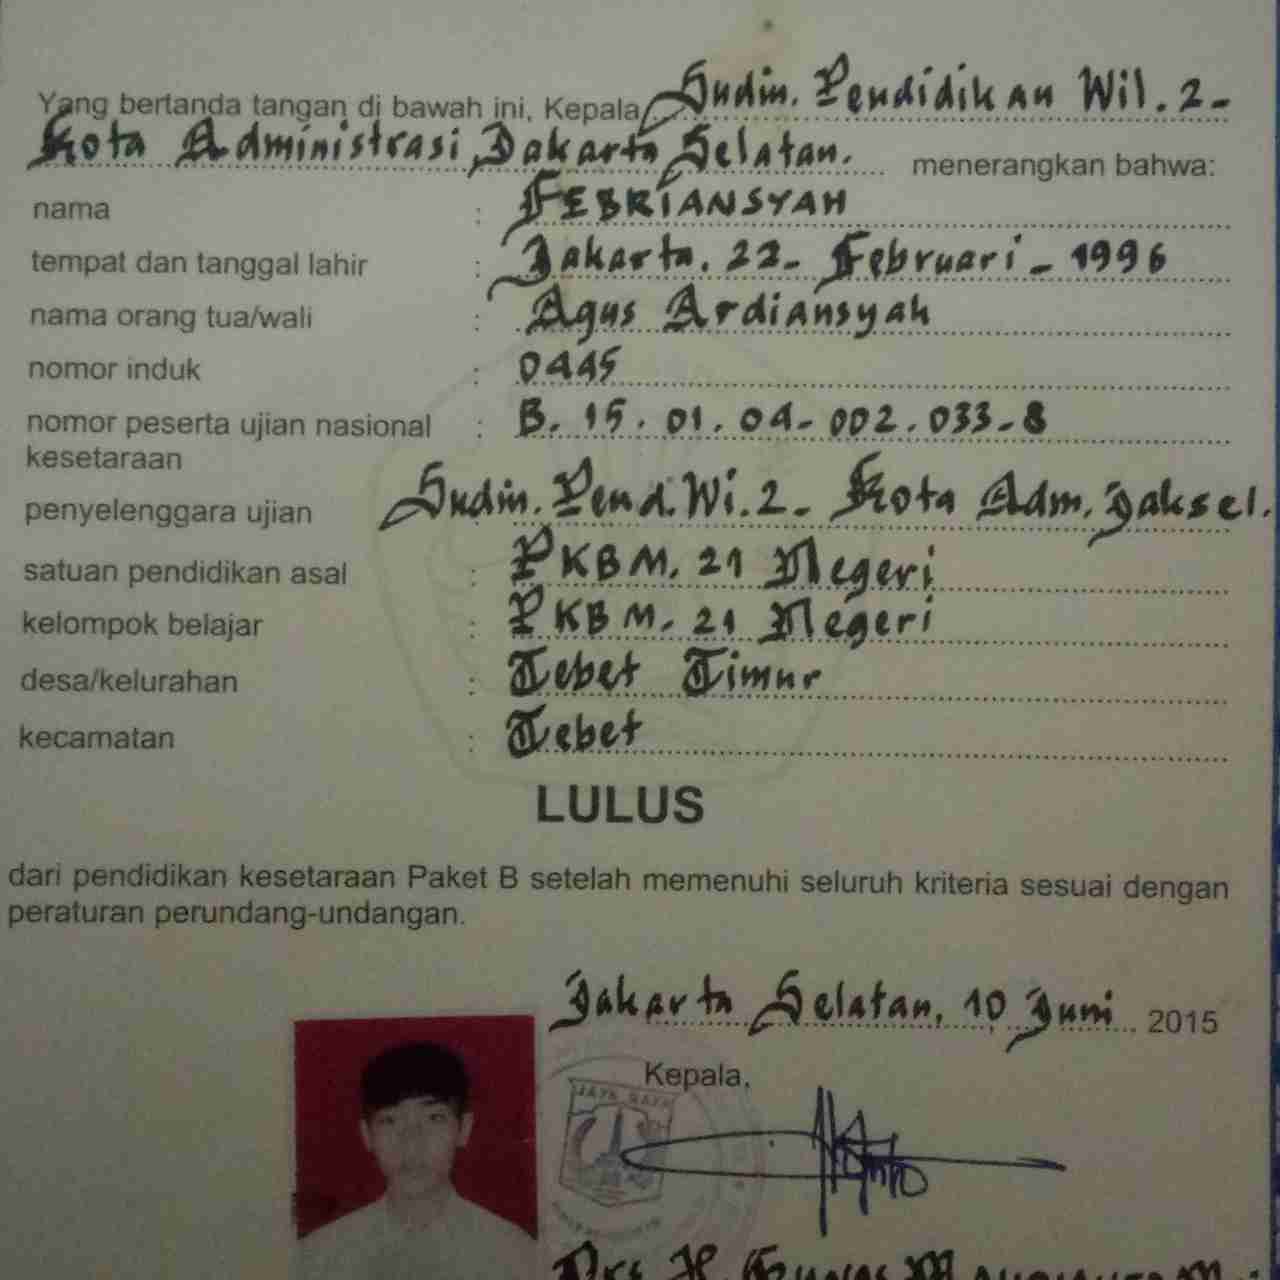 Yang bertanda tangan di bawah ini, Kepala Sudin. Pendidikan Wil. 2-
Kota Administrasi Jakarta Selatan. menerangkan bahwa:
nama : FEBRIANSYAH
tempat dan tanggal lahir : Jakarta. 22- Februari - 1996
nama orang tua/wali : Agus Ardiansyah
nomor induk : 0445
nomor peserta ujian nasional : B. 15. 01. 04- 002. 033-8
kesetaraan
penyelenggara ujian Sudin. Pend. Wi. 2- Kota Adm. Jaksel.
satuan pendidikan asal : PKBM. 21 Negeri
kelompok belajar : PKBM. 21 Negeri
desa/kelurahan : Tebet Timur
kecamatan : Tebet
LULUS
dari pendidikan kesetaraan Paket B setelah memenuhi seluruh kriteria sesuai dengan
peraturan perundang-undangan.
Jakarta Selatan, 10 Juni 2015
Kepala,
JAYA RAYA
Drs H.